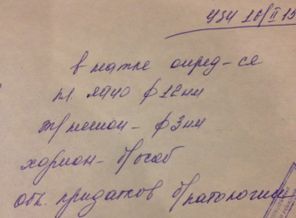 УЗИ 16/II 15
в матке опред-ся
пл. яйцо ф 12мм
ж/мешок - ф 3мм
хорион - б/особ
обл. придатков б/патологии